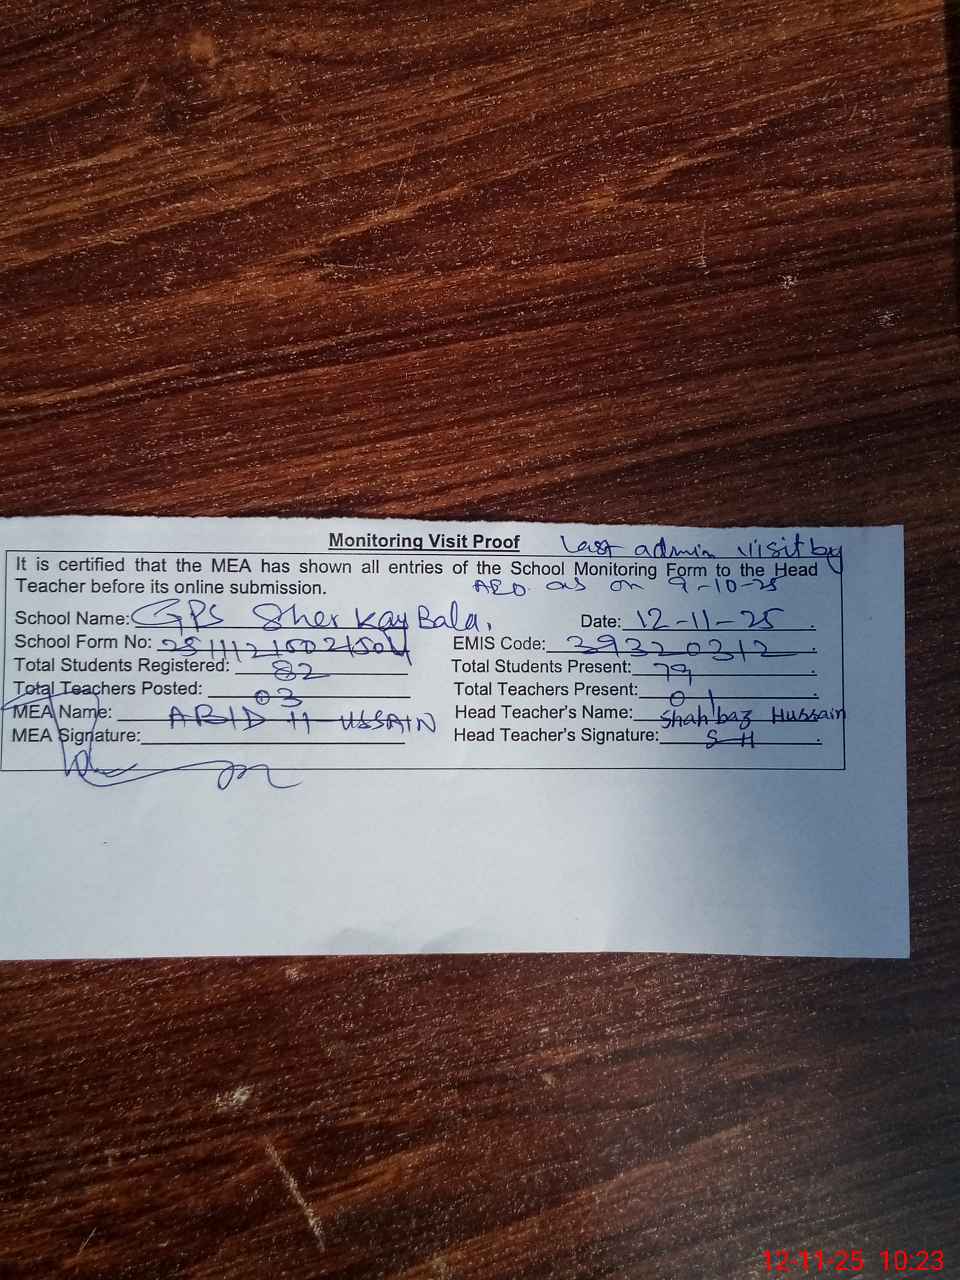 Monitoring Visit Proof
Last admin visit by
AEO as on 9-10-25
It is certified that the MEA has shown all entries of the School Monitoring Form to the Head
Teacher before its online submission.
School Name: GPS Sher Kay Bala. Date: 12-11-25
School Form No: EMIS Code: 39320312
Total Students Registered: 82 Total Students Present: 79
Total Teachers Posted: 03 Total Teachers Present: 01
MEA Name: ABID HUSSAIN Head Teacher's Name: Shahbaz Hussain
MEA Signature: Head Teacher's Signature: S H
12-11-25 10:23